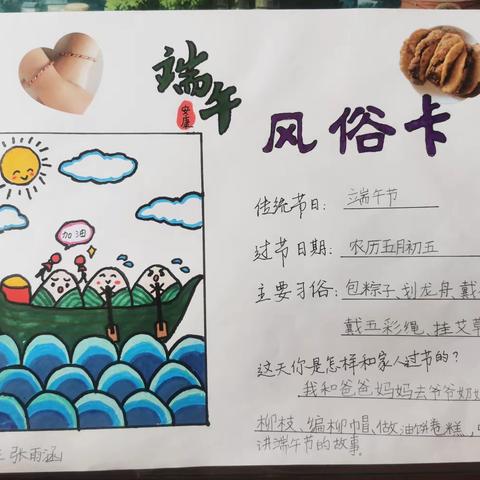 端午
安康
风俗卡
加油
传统节日：端午节
过节日期：农历五月初五
主要习俗：包粽子、划龙舟、戴
戴五彩绳、挂艾草
这天你是怎样和家人过节的？
我和爸爸、妈妈去爷爷奶奶
柳枝、编柳帽、做油饼卷糕，
讲端午节的故事。
张雨涵